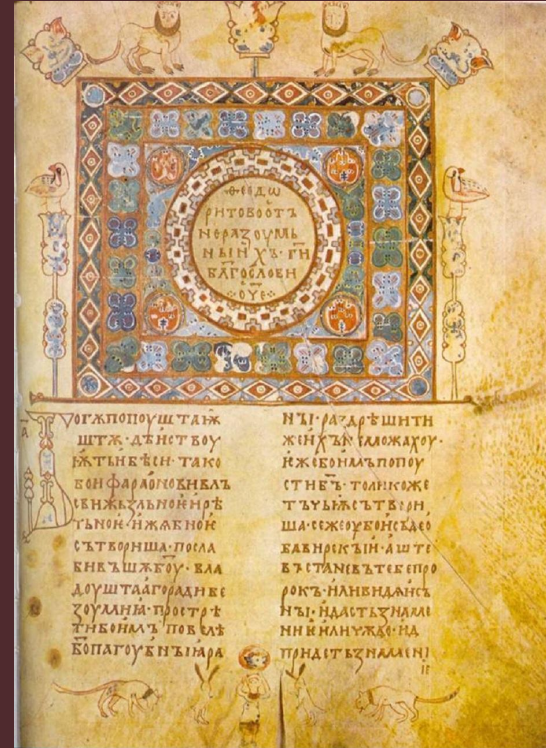 ѲЕѠДѠ
РИТОВООТЪ
НЕРАЗОУМЬ
НЫИХЪ·Г҃И
БЛ҃ГОСЛОВИ
ОЧЕ
БОГѪПОПОУШТАѬ
ШТѪ·ДѢИСТВОУ
ѬТЬИБѢСИ·ТАКО
БОИФАРАОНОВИВЛЪ
ТЬНОИ·ИЖѦБЫОНИ
СЪТВОРИША·ПОСЛА
БИВЪШѪБ҃ОУ·ВЛА
ДОУШТАагОРАДИБЕ
ЗОУМИꙖ·ПРОСТРѢ
ТИБОИМЪПОВЕЛѢ
БОПАГОУБНЫИꙖРА
НЫ·РАЗДРѢШИТИ
ЖЕИХЪНЕМОЖАХОУ·
НЖЕБОИМЪПОПОУ
СТИБ҃Ъ·ТОЛИКОЖЕ
ТЪЧЬѬСЪТВОРИ
ША·СЕЖЕОУБО
БАВИРСКЫИ·АШТЕ
ВЪСТАНЕВЪТЕБЕПРО
РОКЪ·ИЛИВИДѦИСЪ
НЫ·ИДАСТЬЗНАМЕ
НИѤИЛИЧЮДО·ИД
ПРИДЕТЬЗНАМЕНІ
ІЕ